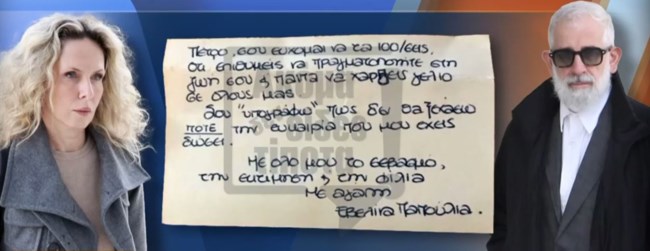 Πέτρο, σου εύχομαι να τα 100/εις,
ότι επιθυμείς να πραγματοποιείτε στη
ζωή σου & πάντα να χαρίζεις γέλιο
σε όλους μας.
Σου "υπογράφω" πως δεν θα ξεχάσω
ποτέ την ευκαιρία που μου έχεις
δώσει.
Με όλο μου το σεβασμό,
την εκτίμηση & την φιλία
Με αγάπη
Εβελίνα Παπούλια.